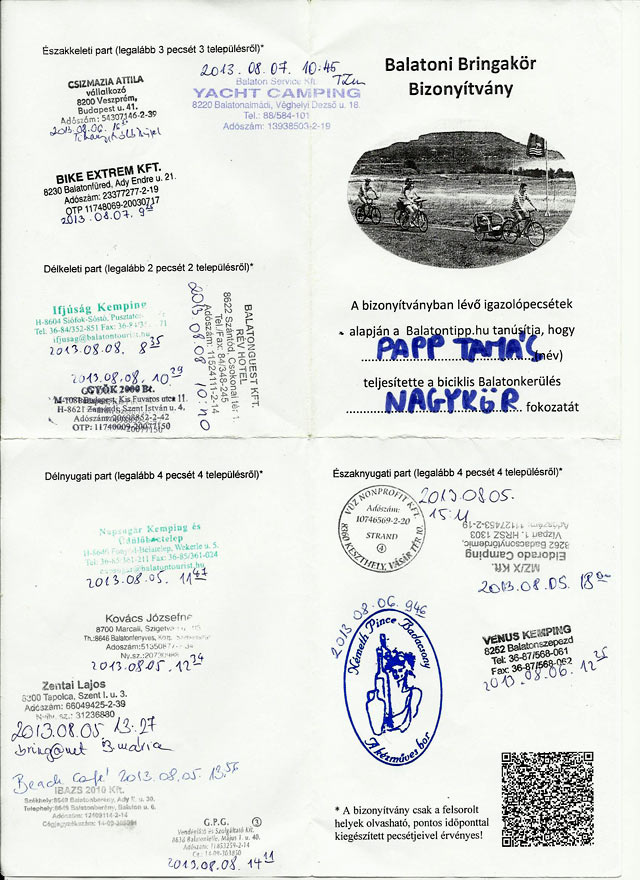 Északkeleti part (legalább 3 pecsét 3 településről)*
CSIZMAZIA ATTILA
vállalkozó
8200 Veszprém,
Budapest u. 41.
Adószám: 54307146-2-39
2013.08.06.
2013.08.07. 10:45
Balaton Service Kft.
YACHT CAMPING
8220 Balatonalmádi, Véghelyi Dezső u. 18.
Tel.: 88/584-101
Adószám: 13938503-2-19
BIKE EXTREM KFT.
8230 Balatonfüred, Ady Endre u. 21.
Adószám: 23377277-2-19
OTP 11748069-20030717
2013.08.07.
Balatoni Bringakör
Bizonyítvány
A bizonyítványban lévő igazolópecsétek
alapján a Balatontipp.hu tanúsítja, hogy
PAPP TAMÁS (név)
teljesítette a biciklis Balatonkerülés
NAGYKÖR fokozatát
Délkeleti part (legalább 2 pecsét 2 településről)*
Ifjúság Kemping
H-8604 Siófok-Sóstó, Pusztatorony
Tel.: 36-84/352-851 Fax: 36-84/
ifjusag@balatontourist.hu
2013.08.08. 8 35
2013.08.08. 10 29
GTÖK 2000 Bt.
H-8621 Zamárdi, Szent István u. 4.
OTP: 11740009-20077150
BALATONGUEST KFT.
RÉV HOTEL
8622 Szántód, Csokonai tér 1.
Tel./Fax: 84/348-245
Adószám: 11524111-2-14
2013.08.08 10:40
Délnyugati part (legalább 4 pecsét 4 településről)*
Napsugár Kemping és
Üdülőbetelep
H-8646 Fonyód-Bélatelep, Wekerle u. 5.
Tel: 36-85/361-211 Fax: 36-85/361-024
napsugar@balatontourist.hu
2013.08.05. 11 47
Kovács Józsefné
8700 Marcali, Szigetvári
Th.:8646 Balatonfenyves,
2013.08.05. 12 24
Zentai Lajos
8300 Tapolca, Szent I. u. 3.
Adószám: 66049425-2-39
Nyilv. sz.: 31236880
2013.08.05. 13:27
bring@net B.mária
Beach Café! 2013.08.05. 13.56
IBAZS 2010 Kft.
Székhely:8649 Balatonberény, Ady E. u. 30.
Telephely:8649 Balatonberény, Balaton u. 6.
G.P.G. 3
Vendéglátó és Szolgáltató Kft.
8638 Balatonlelle, Május 1. u. 40.
2013.08.08. 14 11
Északnyugati part (legalább 4 pecsét 4 településről)*
VÜZ NONPROFIT KFT.
Adószám:
10746569-2-20
STRAND
4
8360 KESZTHELY, VÁSÁR TÉR 10.
2013.08.05.
15:11
MZ/X Kft.
Eldorado Camping
8262 Badacsonytördemic,
Vízpart 1. HRSZ 1303
2013.08.05. 18
2013.08.06. 9 46
Németh Pince Badacsony
A kézműves bor
VENUS KEMPING
8252 Balatonszepezd
Tel. 36-87/568-061
Fax: 36-87/568-062
2013.08.06. 12 25
* A bizonyítvány csak a felsorolt
helyek olvasható, pontos időponttal
kiegészített pecsétjeivel érvényes!